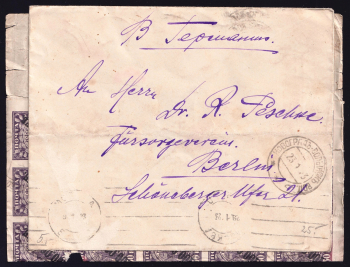 В Германию.
An Herrn
Dr. R. Peschke.
Fürsorgeverein.
Berlin
Schöneberger Ufer 21.
ПОЧТА